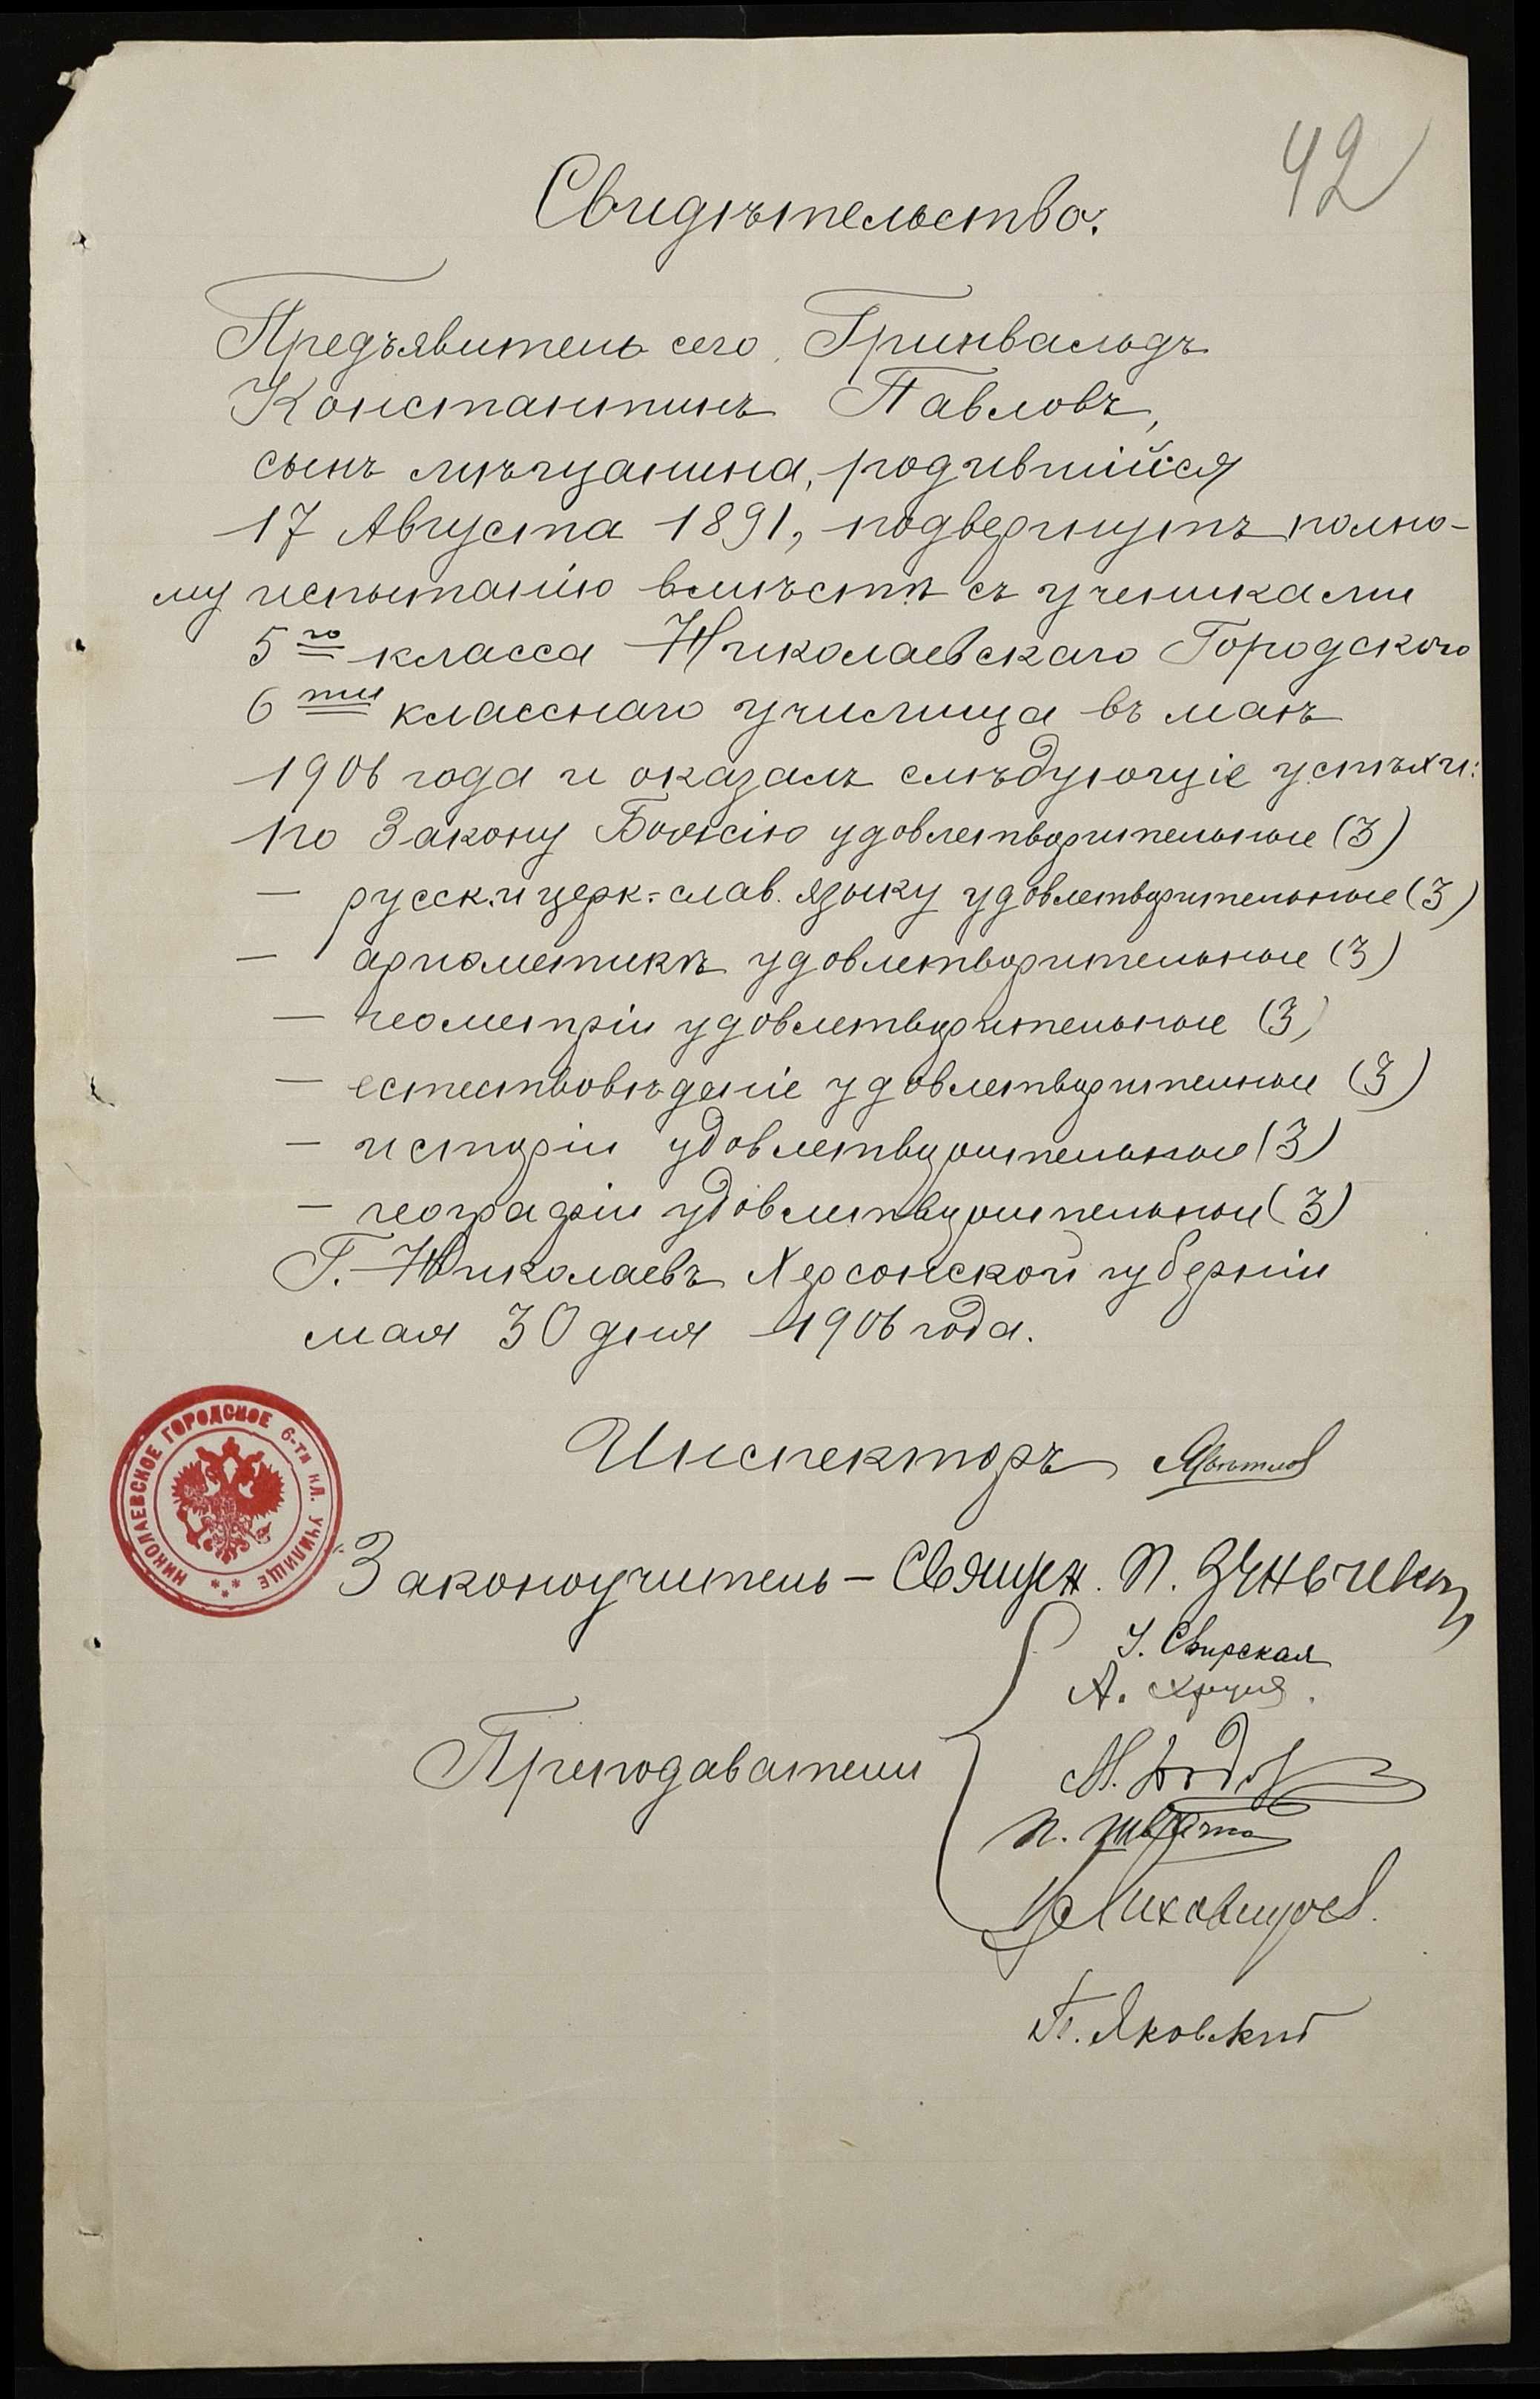 42
Свидѣтельство.
Предъявитель сего, Гринвальдъ
Константинъ Павловъ,
сынъ мѣщанина, родившійся
17 Августа 1891, подвергнутъ полно-
му испытанію вмѣстѣ съ учениками
5го класса Николаевскаго Городского
6ти класснаго училища въ маѣ
1906 года и оказалъ слѣдующіе успѣхи:
по Закону Божію удовлетворительные (3)
— русск. и церк.-слав. языку удовлетворительные (3)
— ариѳметикѣ удовлетворительные (3)
— геометріи удовлетворительные (3)
— естествовѣденіе удовлетворительные (3)
— исторіи удовлетворительные (3)
— географіи удовлетворительные (3)
Г. Николаевъ Херсонской губерніи
мая 30 дня 1906 года.
Инспекторъ
НИКОЛАЕВСКОЕ ГОРОДСКОЕ 6-ТИ КЛ. УЧИЛИЩЕ
Законоучитель — Священ. П.
Свирская
А.
Преподаватели
М.
П.
П. Яковскій